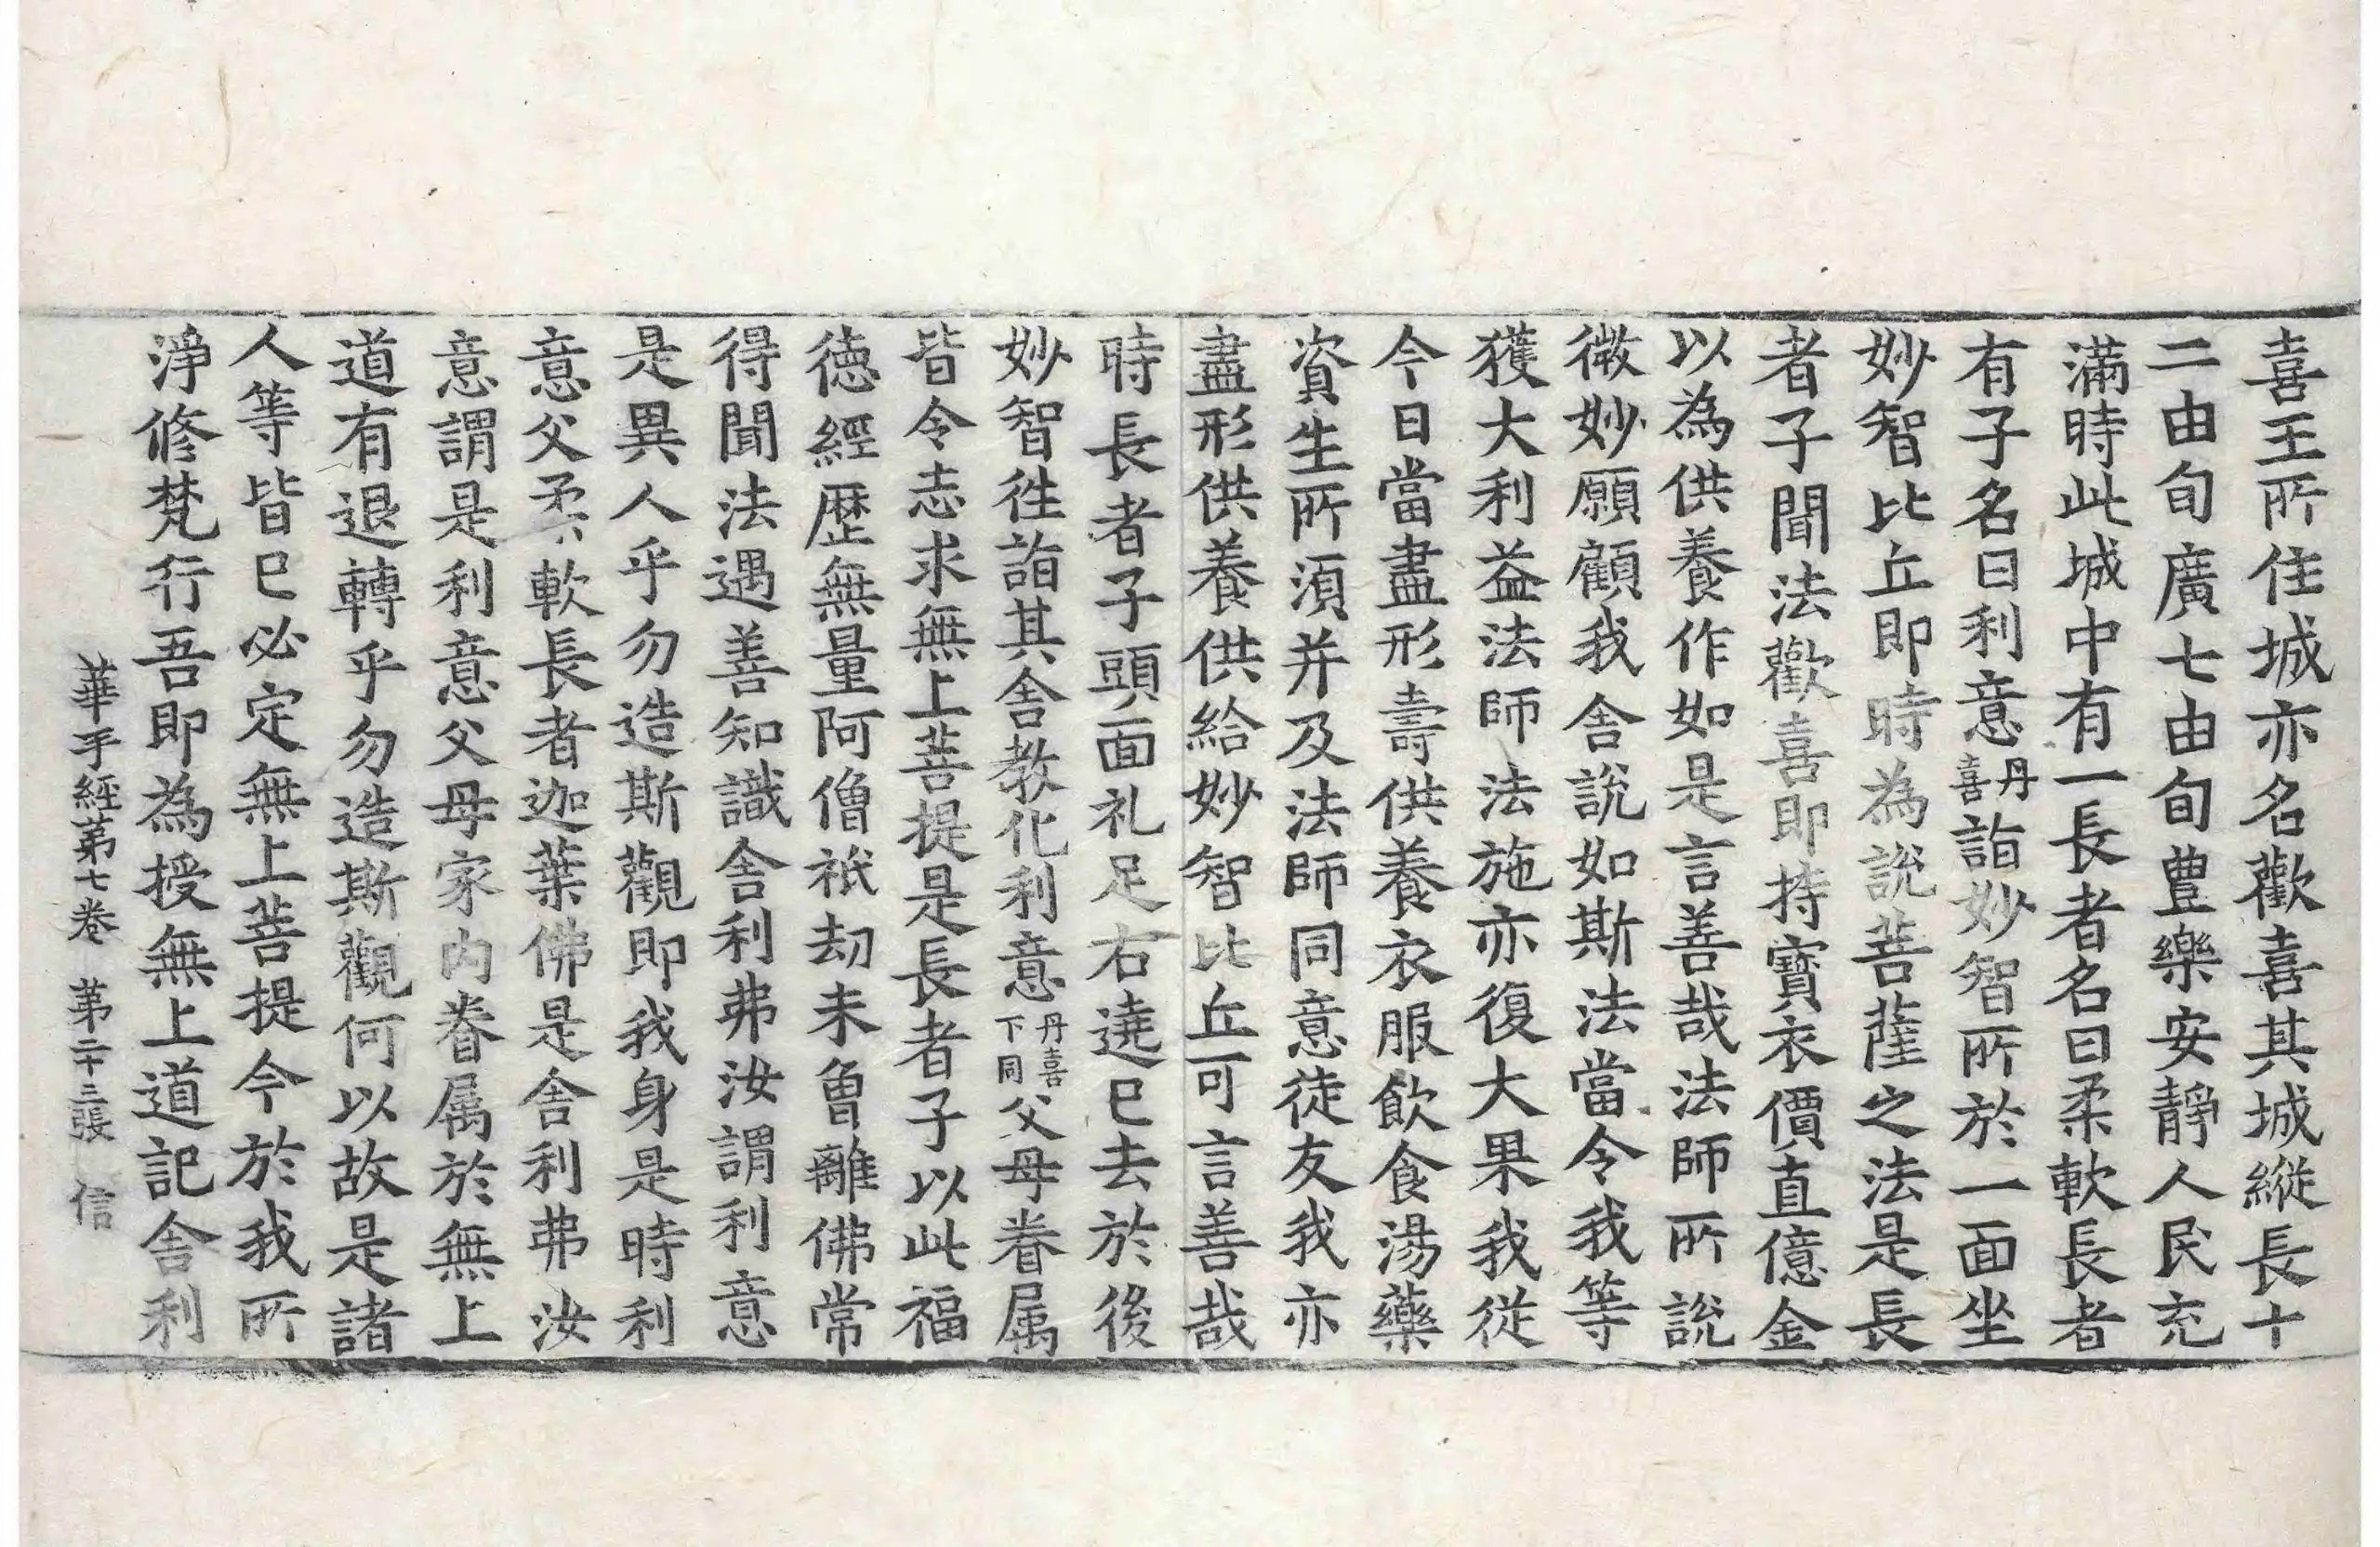 喜王所住城亦名歡喜其城縱長十
二由旬廣七由旬豊樂安靜人民充
滿時此城中有一長者名曰柔軟長者
有子名曰利意丹喜詣妙智所於一面坐
妙智比丘即時為說菩薩之法是長
者子聞法歡喜即持寶衣價直億金
以為供養作如是言善哉法師所說
微妙願顧我舍說如斯法當令我等
獲大利益法師法施亦復大果我從
今日當盡形壽供養衣服飲食湯藥
資生所須并及法師同意徒友我亦
盡形供養供給妙智比丘可言善哉
時長者子頭面礼足右遶已去於後
妙智徃詣其舍教化利意丹喜下同父母眷属
皆令志求無上菩提是長者子以此福
徳經歷無量阿僧祇劫未曾離佛常
得聞法遇善知識舍利弗汝謂利意
是異人乎勿造斯觀即我身是時利
意父柔軟長者迦葉佛是舍利弗汝
意謂是利意父母家内眷属於無上
道有退轉乎勿造斯觀何以故是諸
人等皆已必定無上菩提今於我所
淨修梵行吾即為授無上道記舍利
華手經第七卷 第二十三張 信